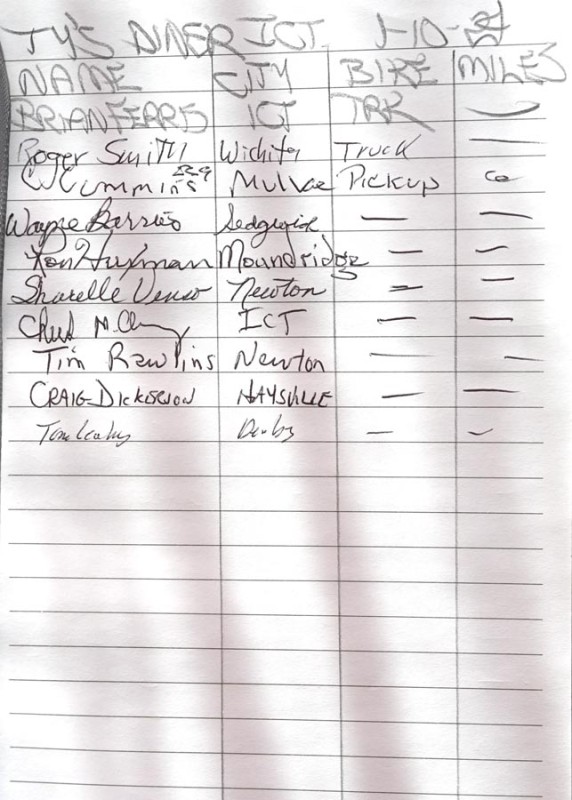 TY'S DINER ICT 1-10-
NAME CITY BIKE MILES
BRIAN FERRIS ICT TRK —
Roger Smith Wichita Truck —
Cummins Mulvane Pickup
Wayne Sedgwick — —
Ron Huxman Moundridge — —
Sharelle Newton — —
Chuck ICT — —
Tim Rawlins Newton — —
CRAIG DICKERSON HAYSVILLE — —
Tom Leahy Derby — —